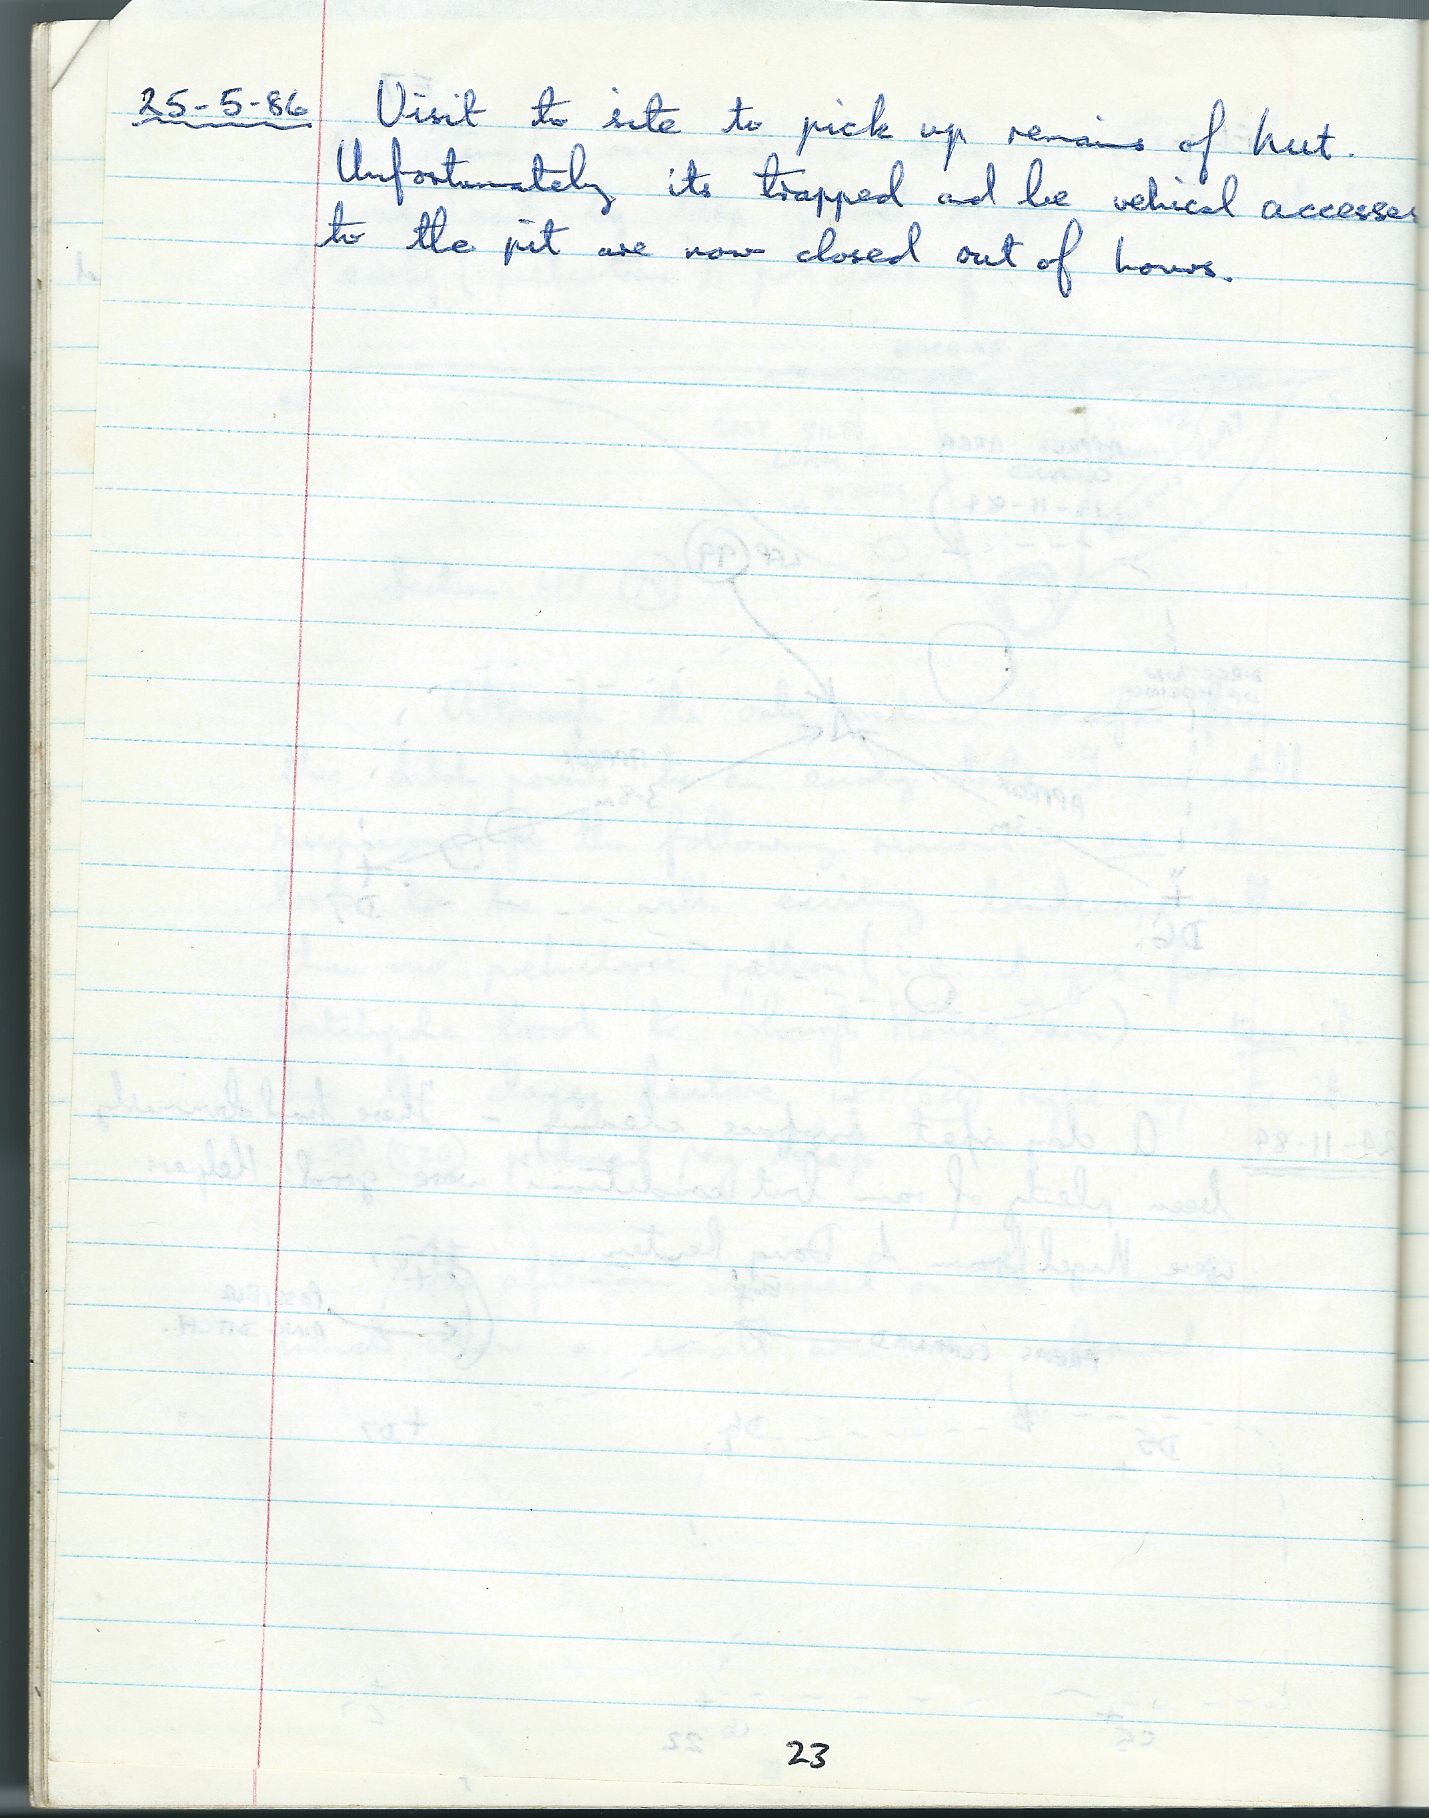 25-5-86 Visit to site to pick up remains of hut.
Unfortunately its trapped and he vehical accesses
to the pit are now closed out of hours.
23